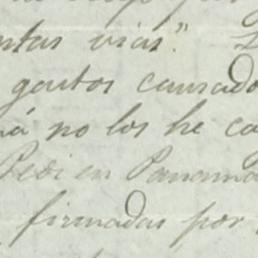 ntas vias."
gastos causado
á no los he ca
Pedi en Panamá
firmadas por